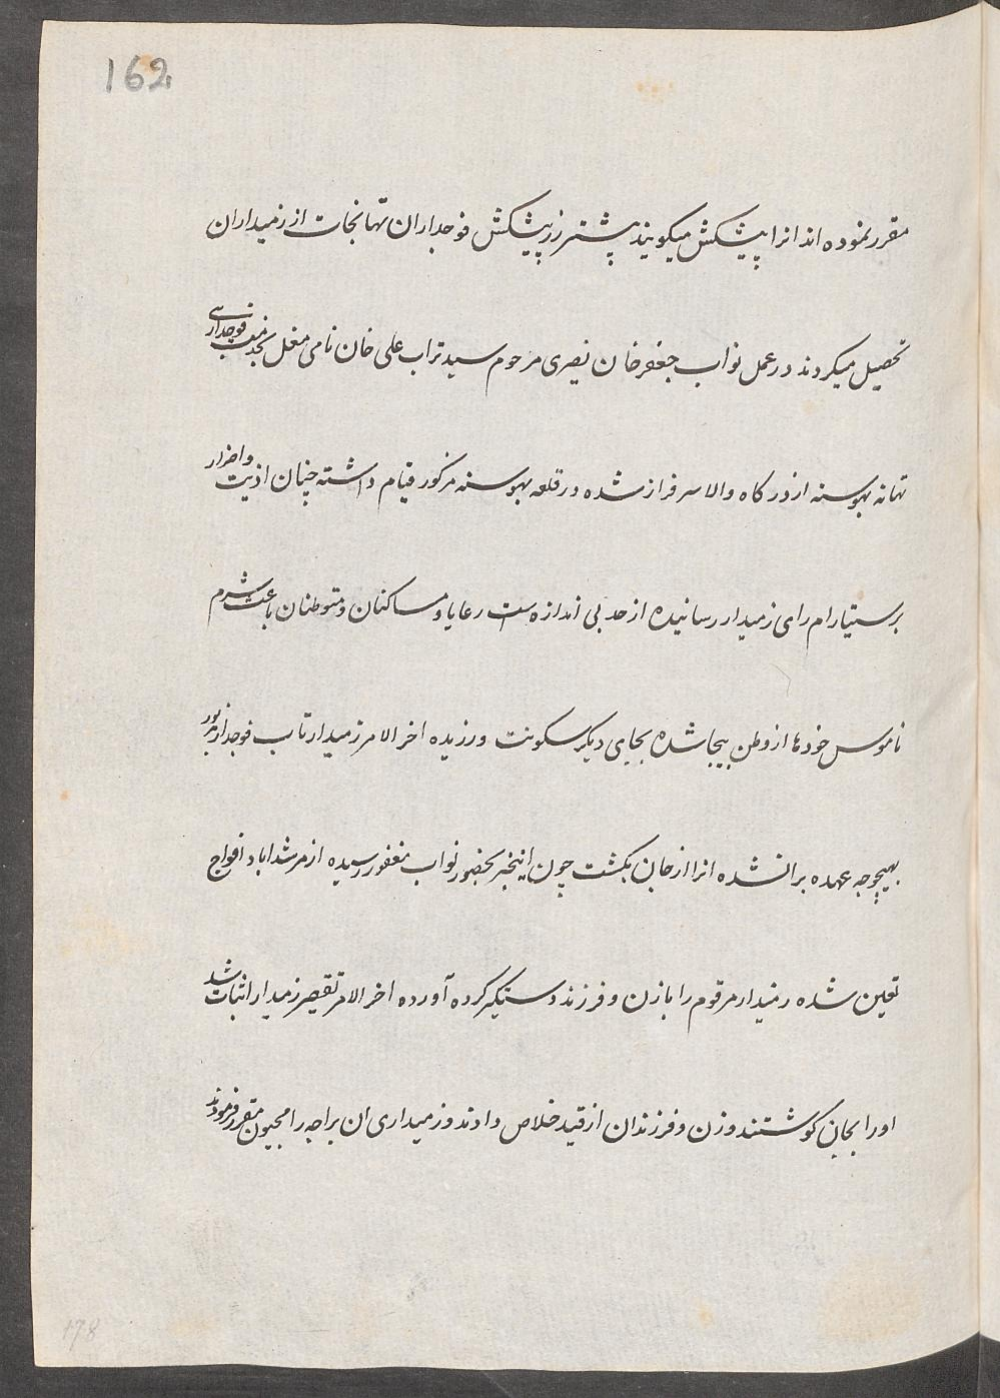 162
مقرر نموده اند انرا پیشکش میکویند پیشتر زر پیشکش فوجداران تهانجات از زمیداران
تحصیل میکردند در عمل نواب جعفر خان نصیری مرحوم سید تراب علی خان نامی مغل بخدمت فوجداری
تهانه بهوسنه از درکاه والا سرفراز شده در قلعه بهوسنه مذکور قیام داشته چنان اذیت و اضرار
بر ستیارام رای زمیدار رسانیده از حد بی اندازه ست رعایا و مساکنان و متوطنان باعث شرم
ناموس خودها از وطن بیجا شده بجای دیکر سکونت ورزیده اخر الامر زمیدار تاب فوجدار مزبور
بهیچوجه عهده برا نشده انرا از جان بکشت چون اینخبر بحضور نواب مغفور رسیده از مرشداباد افواج
تعین شده زمیدار مرقوم را با زن و فرزند دستکیر کرده آورده اخر الامر تقصیر زمیدار اثبات شد
اورا بجان کوشتند و زن و فرزندان از قید خلاص دادند و زمیداری ان براجه رامجیون مقرر فرمودند
178